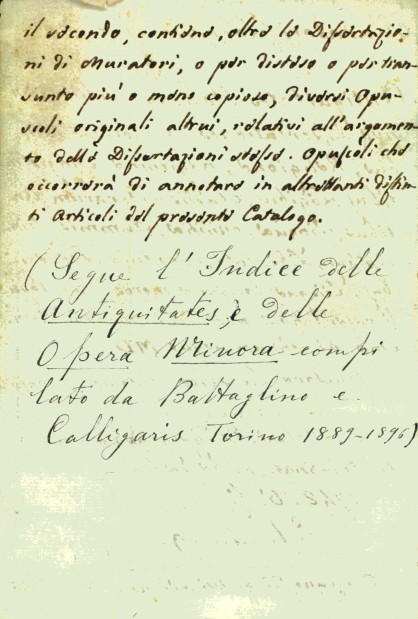 il secondo, contiene, oltre le Dissertazio-
ni di Muratori, o per disteso o per tran-
sunto più o meno copioso, diversi Opu-
scoli originali altrui, relativi all'argomen-
to delle Dissertazioni stesse. Opuscoli che
occorrerà di annotare in altrettanti distin-
ti Articoli del presente Catalogo.
(Segue l'Indice delle
Antiquitates, e delle
Opera Minora compi
lato da Battaglino e
Calligaris Torino 1889-1896)